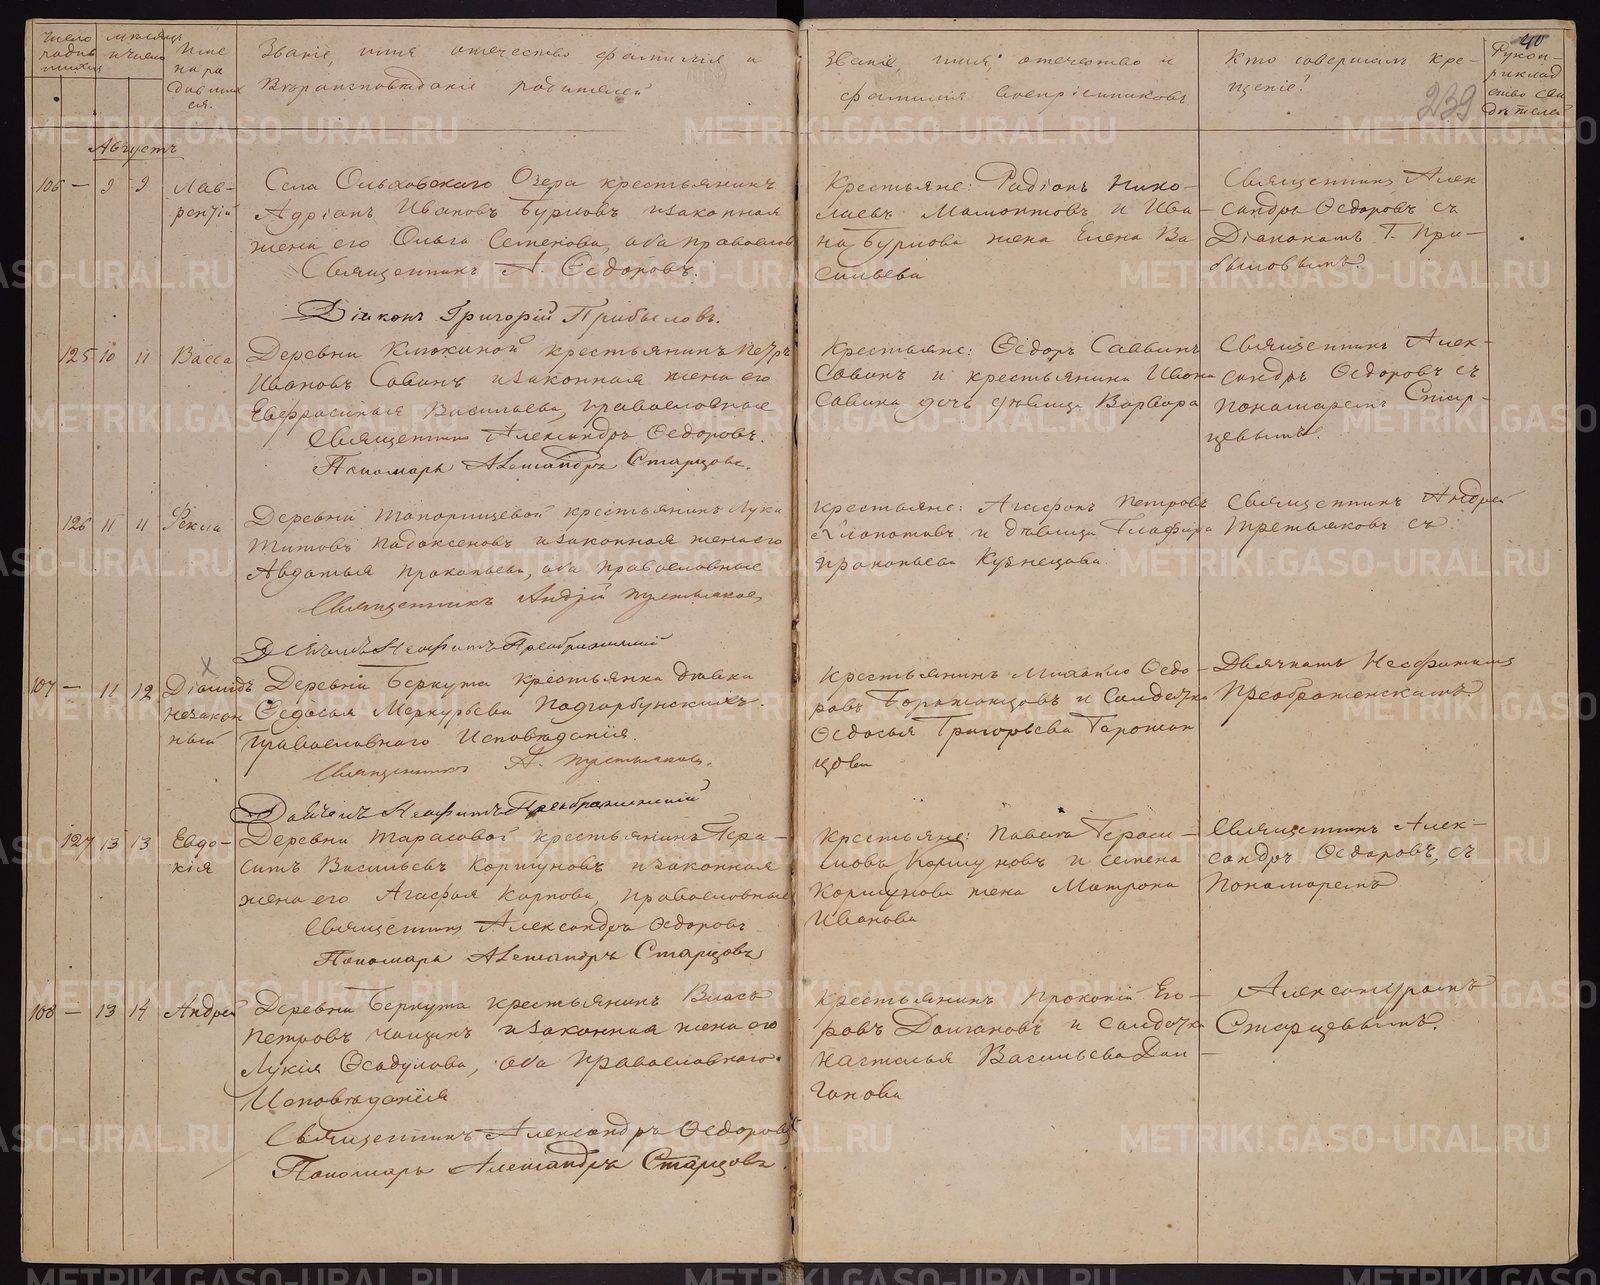 Число родив шихся
Мѣсяцъ и число
Имена ро дивших ся.
Званіе, имя отечество фамилія и
Вѣроисповѣданіе родителей
Званіе имя, отечество и
фамилія Воспріемниковъ
Кто совершалъ кре-
щеніе?
Рукоп-
риклад
ство сви
дѣтелей
40
239
Августъ
106 — 9 9 Лав-
рентій
Села Ольховскаго Озера крестьянинъ
Адріанъ Ивановъ Бурковъ и законная
жена его Ольга Семенова, оба православ
Священникъ А. Ѳедоровъ.
Діаконъ Григорій Прибыловъ.
Крестьяне: Радіонъ Нико-
лаевъ Мамонтовъ и Ива
на Буркова жена Елена Ва
сильева
Священникъ Алек
сандръ Ѳедоровъ съ
Діакономъ Г. При-
быловымъ.
125 10 11 Васса
Деревни Клюкиной крестьянинъ Петръ
Ивановъ Савинъ и законная жена его
Евфросинія Васильева, православные
Священникъ Александръ Ѳедоровъ.
Пономарь Александръ Старцовъ.
Крестьяне: Ѳедоръ Саввинъ
Савинъ и крестьянина Ивана
Савина дочь дѣвица Варвара
Священникъ Алек-
сандръ Ѳедоровъ съ
пономаремъ Стар-
цевымъ.
126 11 11 Ѳекла
Деревни Топорищевой крестьянинъ Лука
Титовъ Падоксеновъ и законная жена его
Авдотья Прокопьева, оба православные
Священникъ Андрей Третьяковъ
Дьячекъ Неофитъ Преображенскій
Крестьяне: Агафонъ Петровъ
и дѣвица Глафира
Прокопьева Кузнецова.
Священникъ Андрей
Третьяковъ съ
107 — 11 12 Діомидъ
незакон
ный
Деревни Беркута крестьянка дѣвка
Ѳедосья Меркурьева Подгорбунскихъ.
Православнаго Исповѣданія.
Священникъ А. Третьяковъ.
Дьячекъ Неофитъ Преображенскій
Крестьянинъ Михаило Ѳедо-
ровъ и Солдатка
Ѳедосья Григорьева
Дьячкомъ Неофитомъ
Преображенскимъ
127 13 13 Евдо-
кія
Деревни Тарасовой крестьянинъ Гера-
симъ Васильевъ Коршуновъ и законная
жена его Агафья Карпова, православные
Священникъ Александръ Ѳедоровъ
Пономарь Александръ Старцовъ
Крестьяне: Павелъ Гераси-
мовъ Коршуновъ и Семена
Коршунова жена Матрона
Иванова
Священникъ Алек-
сандръ Ѳедоровъ, съ
Пономаремъ
108 — 13 14 Андрей
Деревни Беркута крестьянинъ Власъ
Петровъ и законная жена его
Лукія Ѳсодулова, оба Православнаго
Исповѣданія
Священникъ Александръ Ѳедоровъ
Пономарь Александръ Старцовъ.
Крестьянинъ Прокопій Его-
ровъ Долгановъ и солдатка
Наталья Васильева Дол-
ганова
Александромъ
Старцевымъ.
METRIKI.GASO-URAL.RU